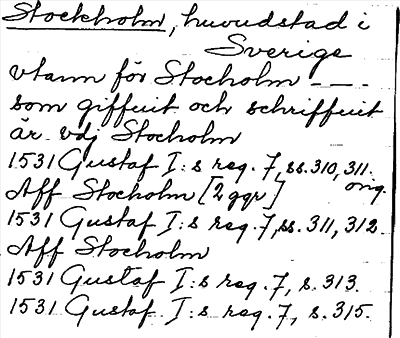 Stockholm, huvudstad i
Sverige
vtann för Stocholm — — —
som giffuit och schriffuit
är vdj Stocholm
1531 Gustaf I:s reg. 7, ss. 310, 311.
orig.
Aff Stocholm [2 ggr]
1531 Gustaf I:s reg. 7, ss. 311, 312.
Aff Stocholm
1531 Gustaf I:s reg. 7, s. 313.
1531 Gustaf I:s reg. 7, s. 315.